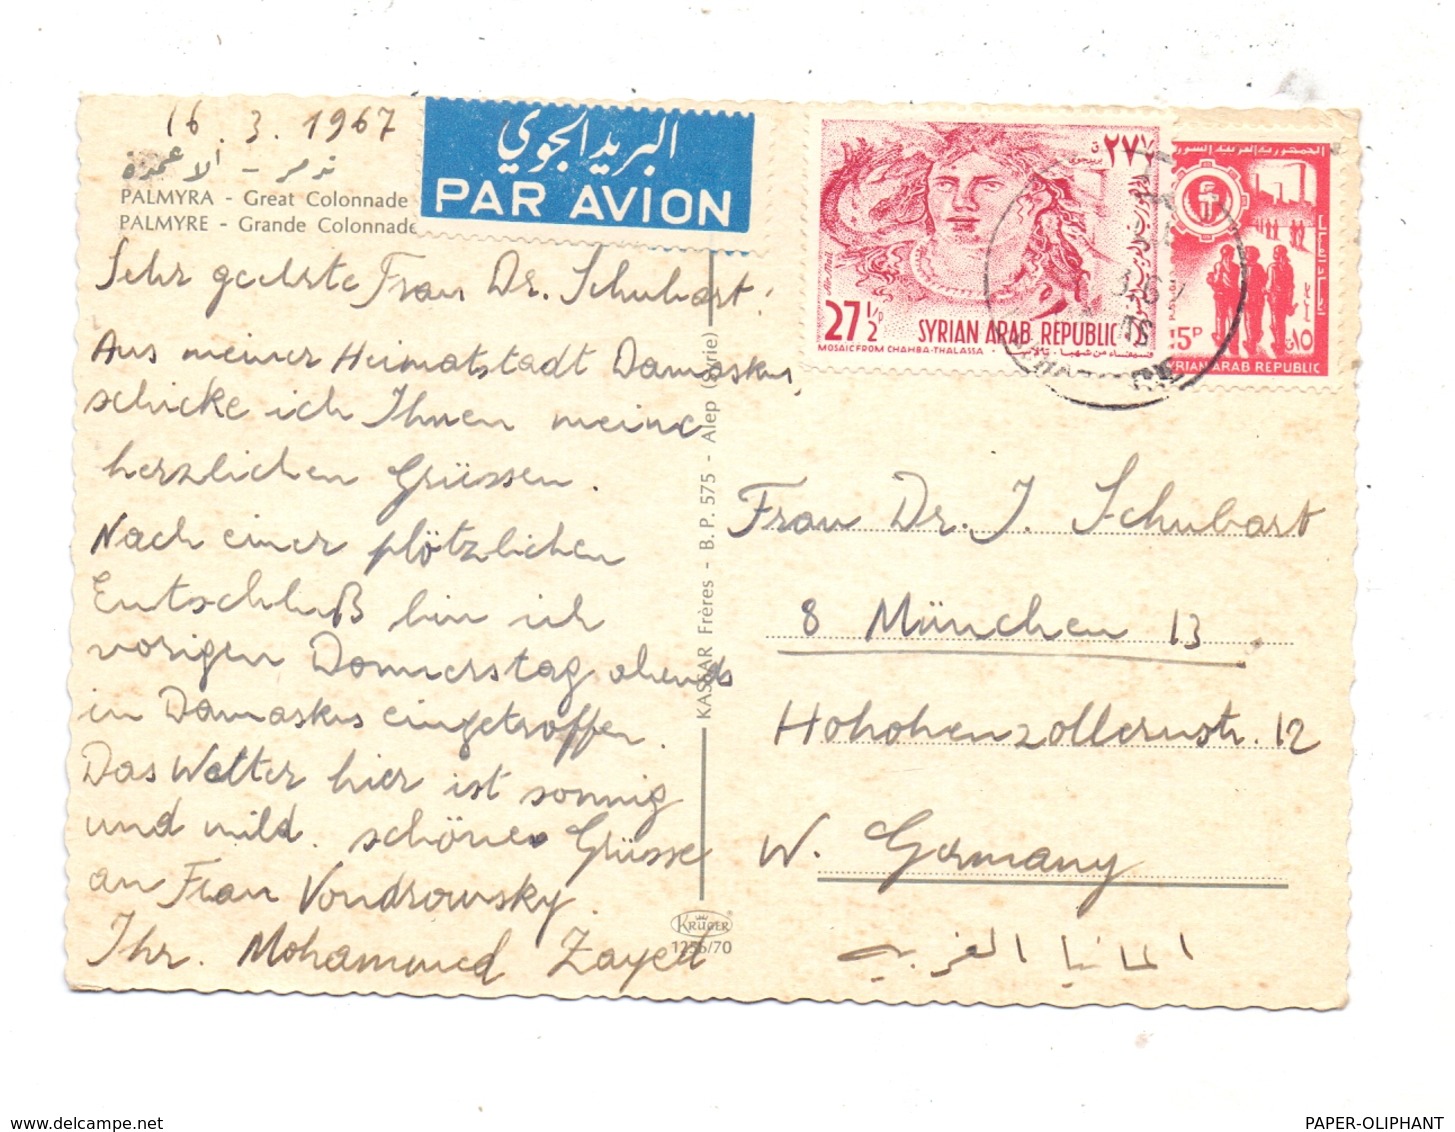 16. 3. 1967
تدمر - الاعمدة
PALMYRA - Great Colonnade
PALMYRE - Grande Colonnade
البريد الجوي
PAR AVION
Sehr geehrte Frau Dr. Schubart!
Aus meiner Heimatstadt Damaskus
schicke ich Ihnen meine
herzlichen Grüssen.
Nach einer plötzlichen
Entschluß bin ich
vorigen Donnerstag abends
in Damaskus eingetroffen.
Das Wetter hier ist sonnig
und mild. schöne Grüsse
an Frau Vondrowsky.
Ihr. Mohammed Zayed
KASSAR Frères - B. P. 575 - Alep (Syrie)
KRÜGER
1256/70
٢٧ ½
27 ½ P
SYRIAN ARAB REPUBLIC
MOSAIC FROM CHAHBA-THALASSA
الجمهورية العربية السورية
اتحاد العمال
15P
١٥
SYRIAN ARAB REPUBLIC
Frau Dr. J. Schubart
8 München 13
Hohohenzollernstr. 12
W. Germany
المانيا الغربية
www.delcampe.net
PAPER-OLIPHANT